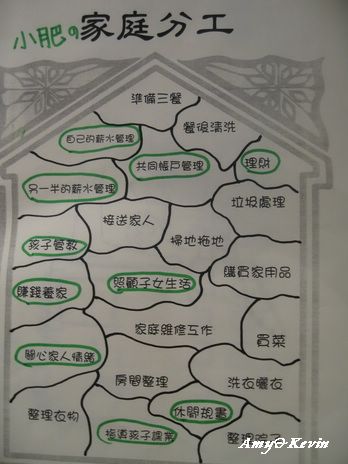 小肥の家庭分工
準備三餐
餐後清洗
自己的薪水管理
共同帳戶管理
理財
另一半的薪水管理
垃圾處理
接送家人
掃地拖地
孩子管教
購買家用品
賺錢養家
照顧子女生活
家庭維修工作
買菜
關心家人情緒
房間整理
洗衣曬衣
整理衣物
休閒規畫
指導孩子課業
整理
Amy& Kevin